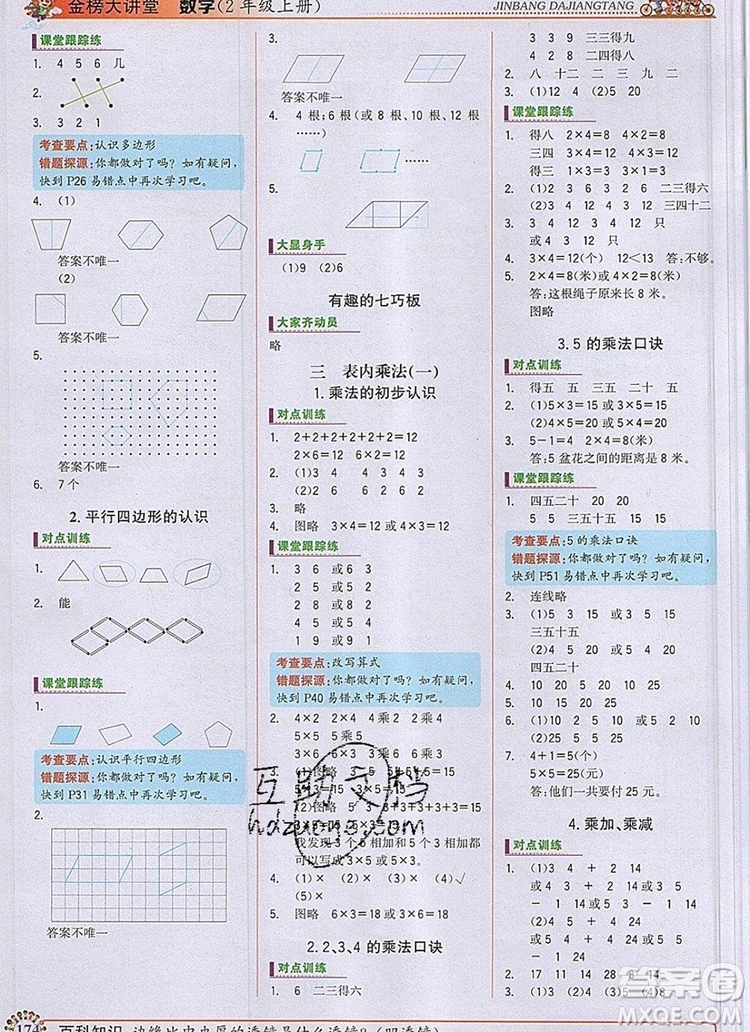 金榜大讲堂 数学(2年级上册)
JINBANG DAJIANGTANG
课堂跟踪练
1. 4 5 6 几
2.
3. 3 2 1
考查要点:认识多边形
错题探源:你都做对了吗?如有疑问,
快到 P26 易错点中再次学习吧。
4. (1)
答案不唯一
(2)
答案不唯一
5.
答案不唯一
6. 7个
2.平行四边形的认识
对点训练
1.
2. 能
课堂跟踪练
1.
考查要点:认识平行四边形
错题探源:你都做对了吗?如有疑问,
快到 P31 易错点中再次学习吧。
2.
答案不唯一
3.
答案不唯一
4. 4根;6根(或8根、10根、12根
……)
5.
大显身手
(1)9 (2)6
有趣的七巧板
大家齐动员
略
三 表内乘法(一)
1.乘法的初步认识
对点训练
1. 2+2+2+2+2+2=12
2×6=12 6×2=12
2. (1)3 4 3 4
(2)6 2 6 2
3. 略
4. 图略 3×4=12 4×3=12
课堂跟踪练
1. 3 6 或6 3
3 8 或8 3
4 5 或5 4
2 8 或8 2
1 9 或9 1
考查要点:改写算式
错题探源:你都做对了吗?如有疑问,
快到 P40 易错点中再次学习吧。
2. 4×2 2×4 4乘2 2乘4
5×5 5乘5
3×6 6×3 3乘6 6乘3
3. (1)图略
(2)图略 3+3+3+3+3=15
我发现 3 个 5 和 5 个 3 相加都
可以写成 3×5 或 5×3。
4. (1)× (2)× (3)× (4)√
(5)×
5. 图略 6×3=18 或3×6=18
2.2、3、4 的乘法口诀
对点训练
1. 6 二三得六
3 3 9 三三得九
4 2 8 二四得八
2. 八 十二 三 二 九 二
3. (1)12 4 (2)5 20
课堂跟踪练
1. 得八 2×4=8 4×2=8
三四 3×4=12 4×3=12
得三 1×3=3 3×1=3
2. (1)2 3 6 3 2 6 二三得六
(2)3 4 12 4 3 12 三四十二
3. 3 4 12 4 3 12
或4 3 12 3 4 12
4. 3×4=12(个) 12<13 答:不够。
5. 2×4=8(米)或4×2=8(米)
答:这根绳子原来长8米。
图略
3.5 的乘法口诀
对点训练
1. 得五 三五 五 二五 五十
2. (1)5×3=15 或3×5=15
(2)5×4=20 或4×5=20
3. 5-1=4 2×4=8(米)
答:5盆花之间的距离是8米。
课堂跟踪练
1. 四五二十 20 20
5 5 三五十五 15 15
考查要点:5 的乘法口诀
错题探源:你都做对了吗?如有疑问,
快到 P51 易错点中再次学习吧。
2. 连线略
3. (1)5 3 15 或3 5 15
三五十五
(2)5 4 20 或4 5 20
四五二十
4. 10 20 5 25 15 20
5. 15 20 25 10
6. (1)2 5 10 或5 2 10
(2)4 5 20 或5 4 20
7. 4+1=5(个)
5×5=25(元)
答:他们一共要付25元。
4.乘加、乘减
对点训练
1. (1)3 4 + 2 14
或4 3 + 2 14
(2)3 5 - 1 14
或5 3 - 1 14
互助文档
hdzuone.com
答案圈
MXQE.COM
174
百科知识